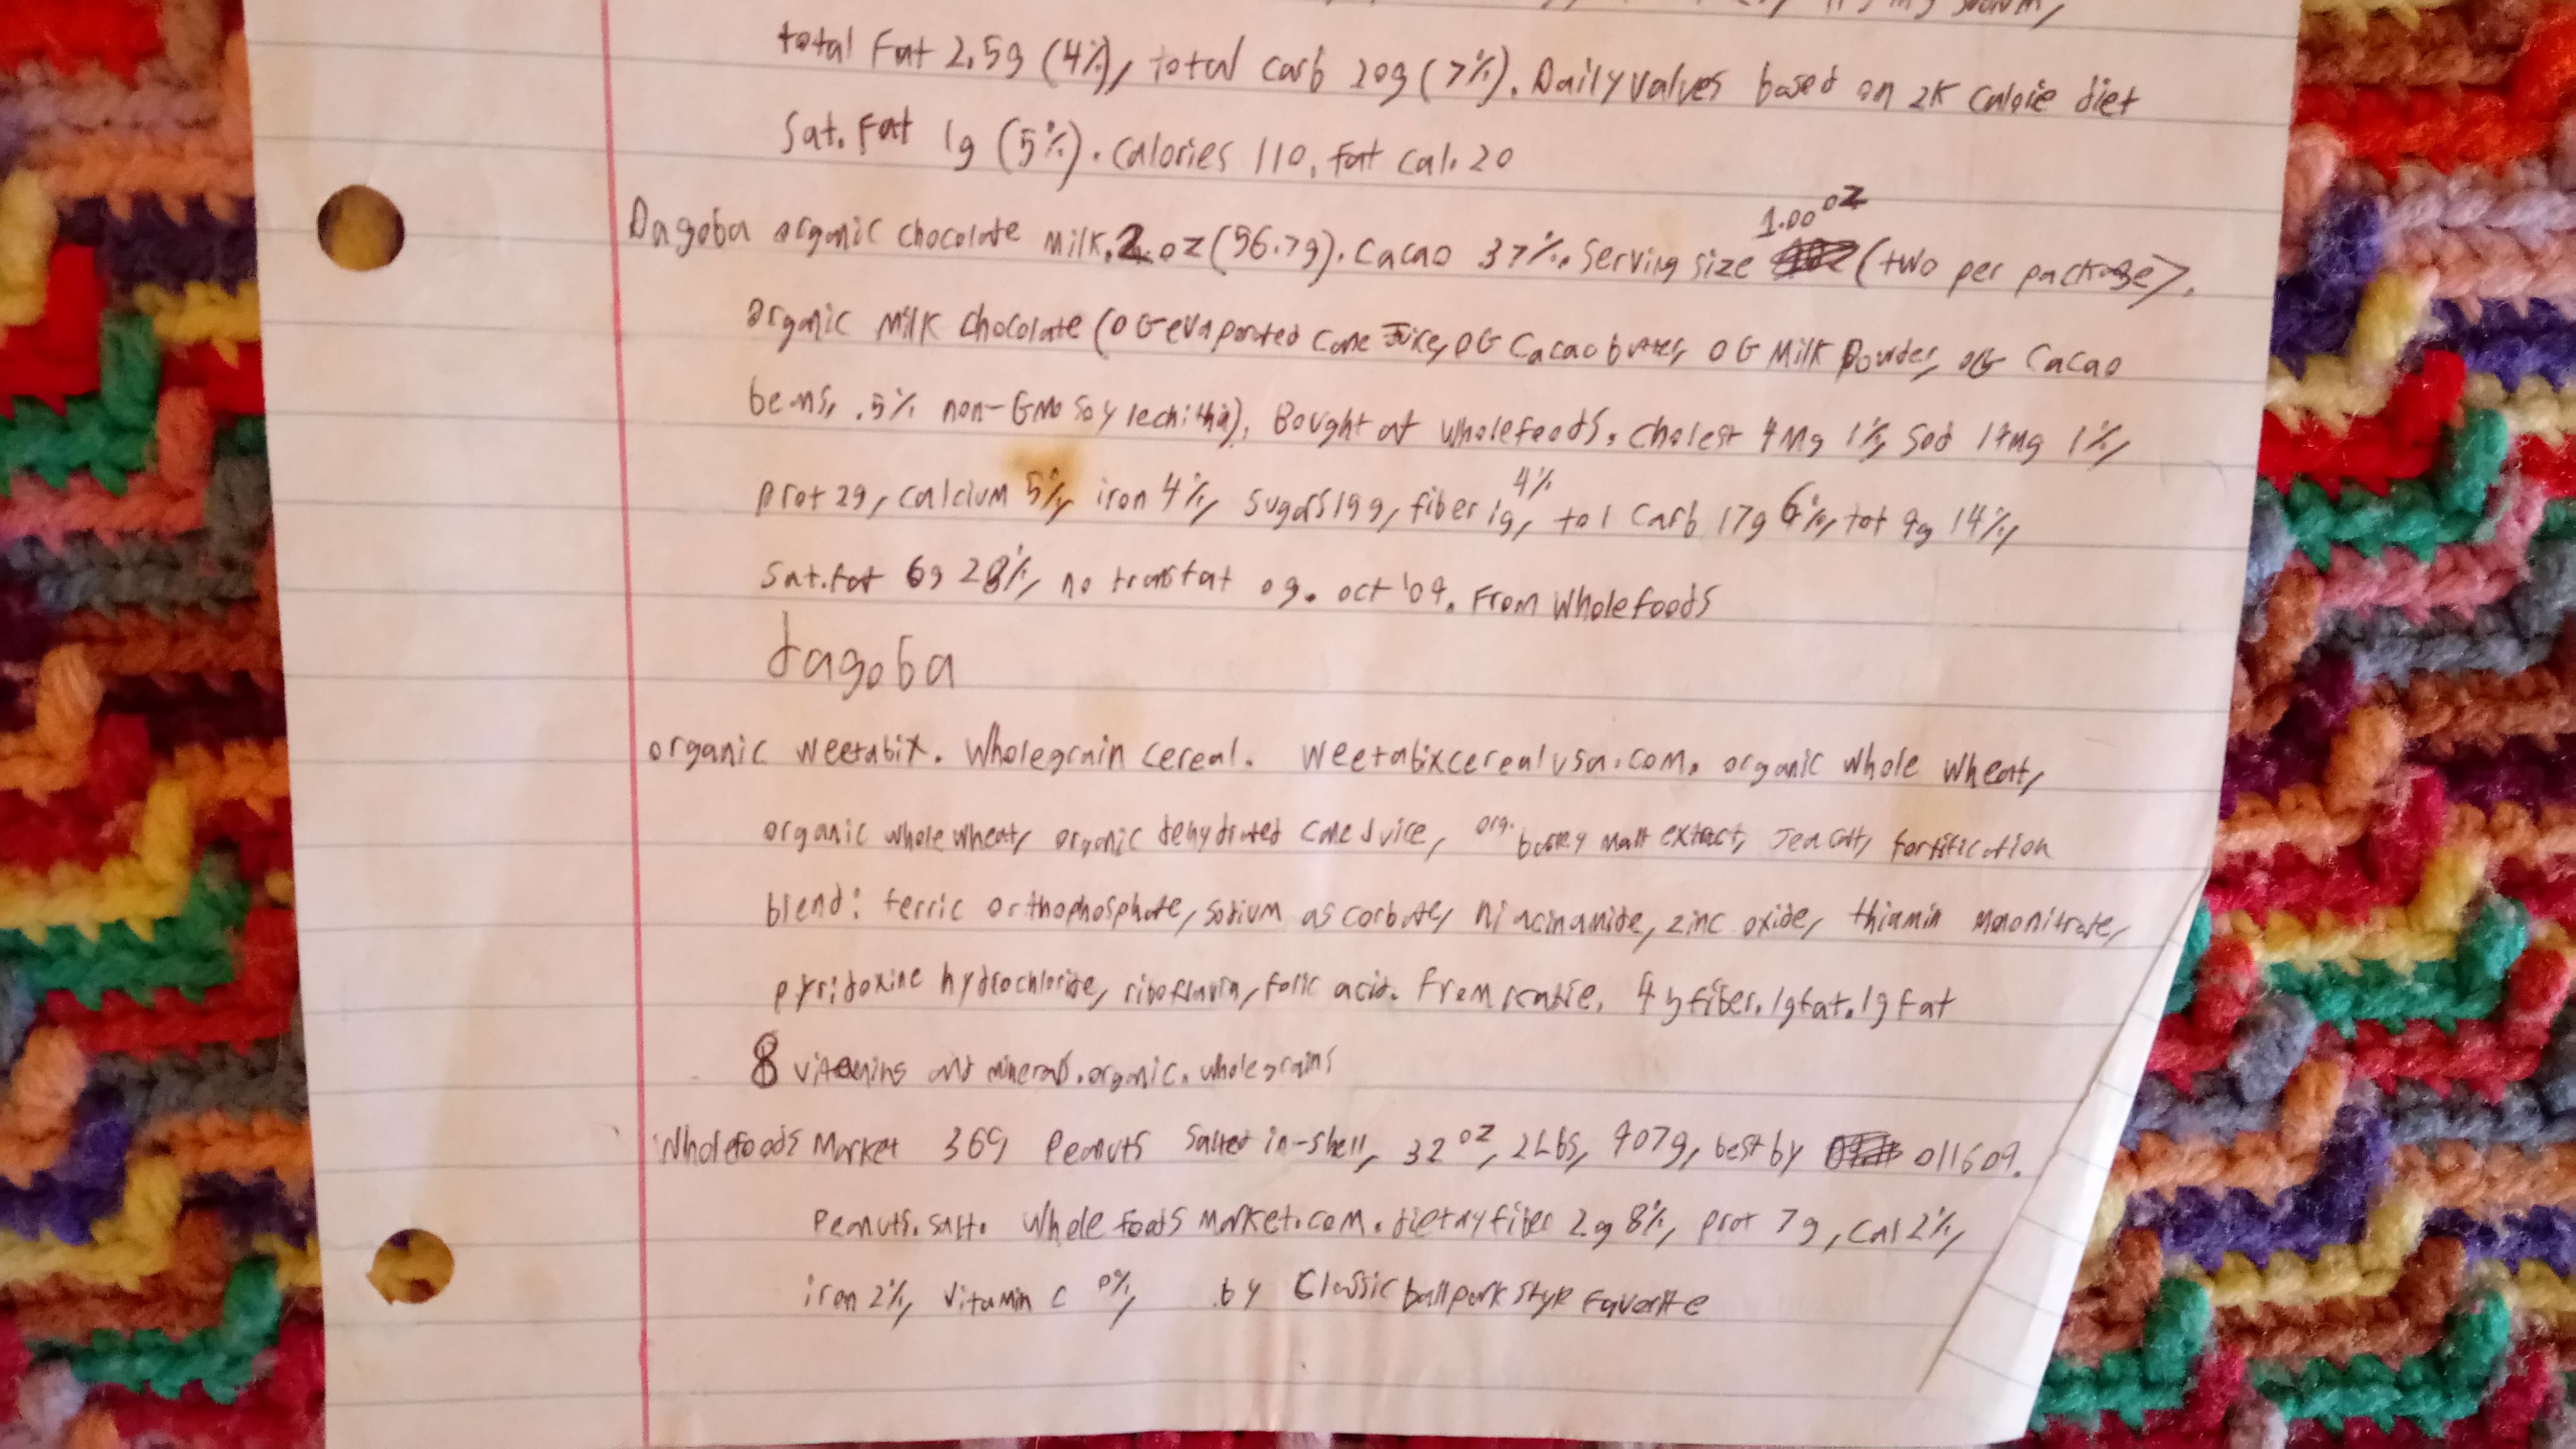 total Fat 2.5g (4%), total carb 20g (7%). Daily values based on 2K calorie diet
Sat. Fat 1g (5%). calories 110, fat cal. 20
1.00 oz
Dagoba organic chocolate milk. 2 oz (56.7g). Cacao 37%. Serving size (two per package).
organic milk chocolate (OG evaporated cane juice, OG Cacao butter, OG Milk Powder, OG Cacao
beans, .5% non-GMO soy lechithin). Bought at wholefoods. Cholest 4mg 1%, sod 14mg 1%,
4%
prot 2g, calcium 5%, iron 4%, sugars 19g, fiber 1g, tot carb 17g 6%, tot 9g 14%,
sat. fat 6g 28%, no transfat 0g. oct '09. From Wholefoods
dagoba
organic weetabix. Wholegrain cereal. weetabixcerealusa.com. organic whole wheat,
organic whole wheat, organic dehydrated cane juice, org. barley malt extract, sea salt, fortification
blend: ferric orthophosphate, sodium ascorbate, niacinamide, zinc oxide, thiamin mononitrate,
pyridoxine hydrochloride, riboflavin, folic acid. From Katie. 4g fiber. 1g fat. 1g fat
8 vitamins and minerals. organic. wholegrains
Wholefoods Market 365 Peanuts salted in-shell, 32 oz, 2Lbs, 907g, best by 011609.
Peanuts. salt. Whole foods market.com. dietary fiber 2g 8%, prot 7g, cal 2%,
iron 2%, vitamin c 0%, by Classic ballpark style favorite